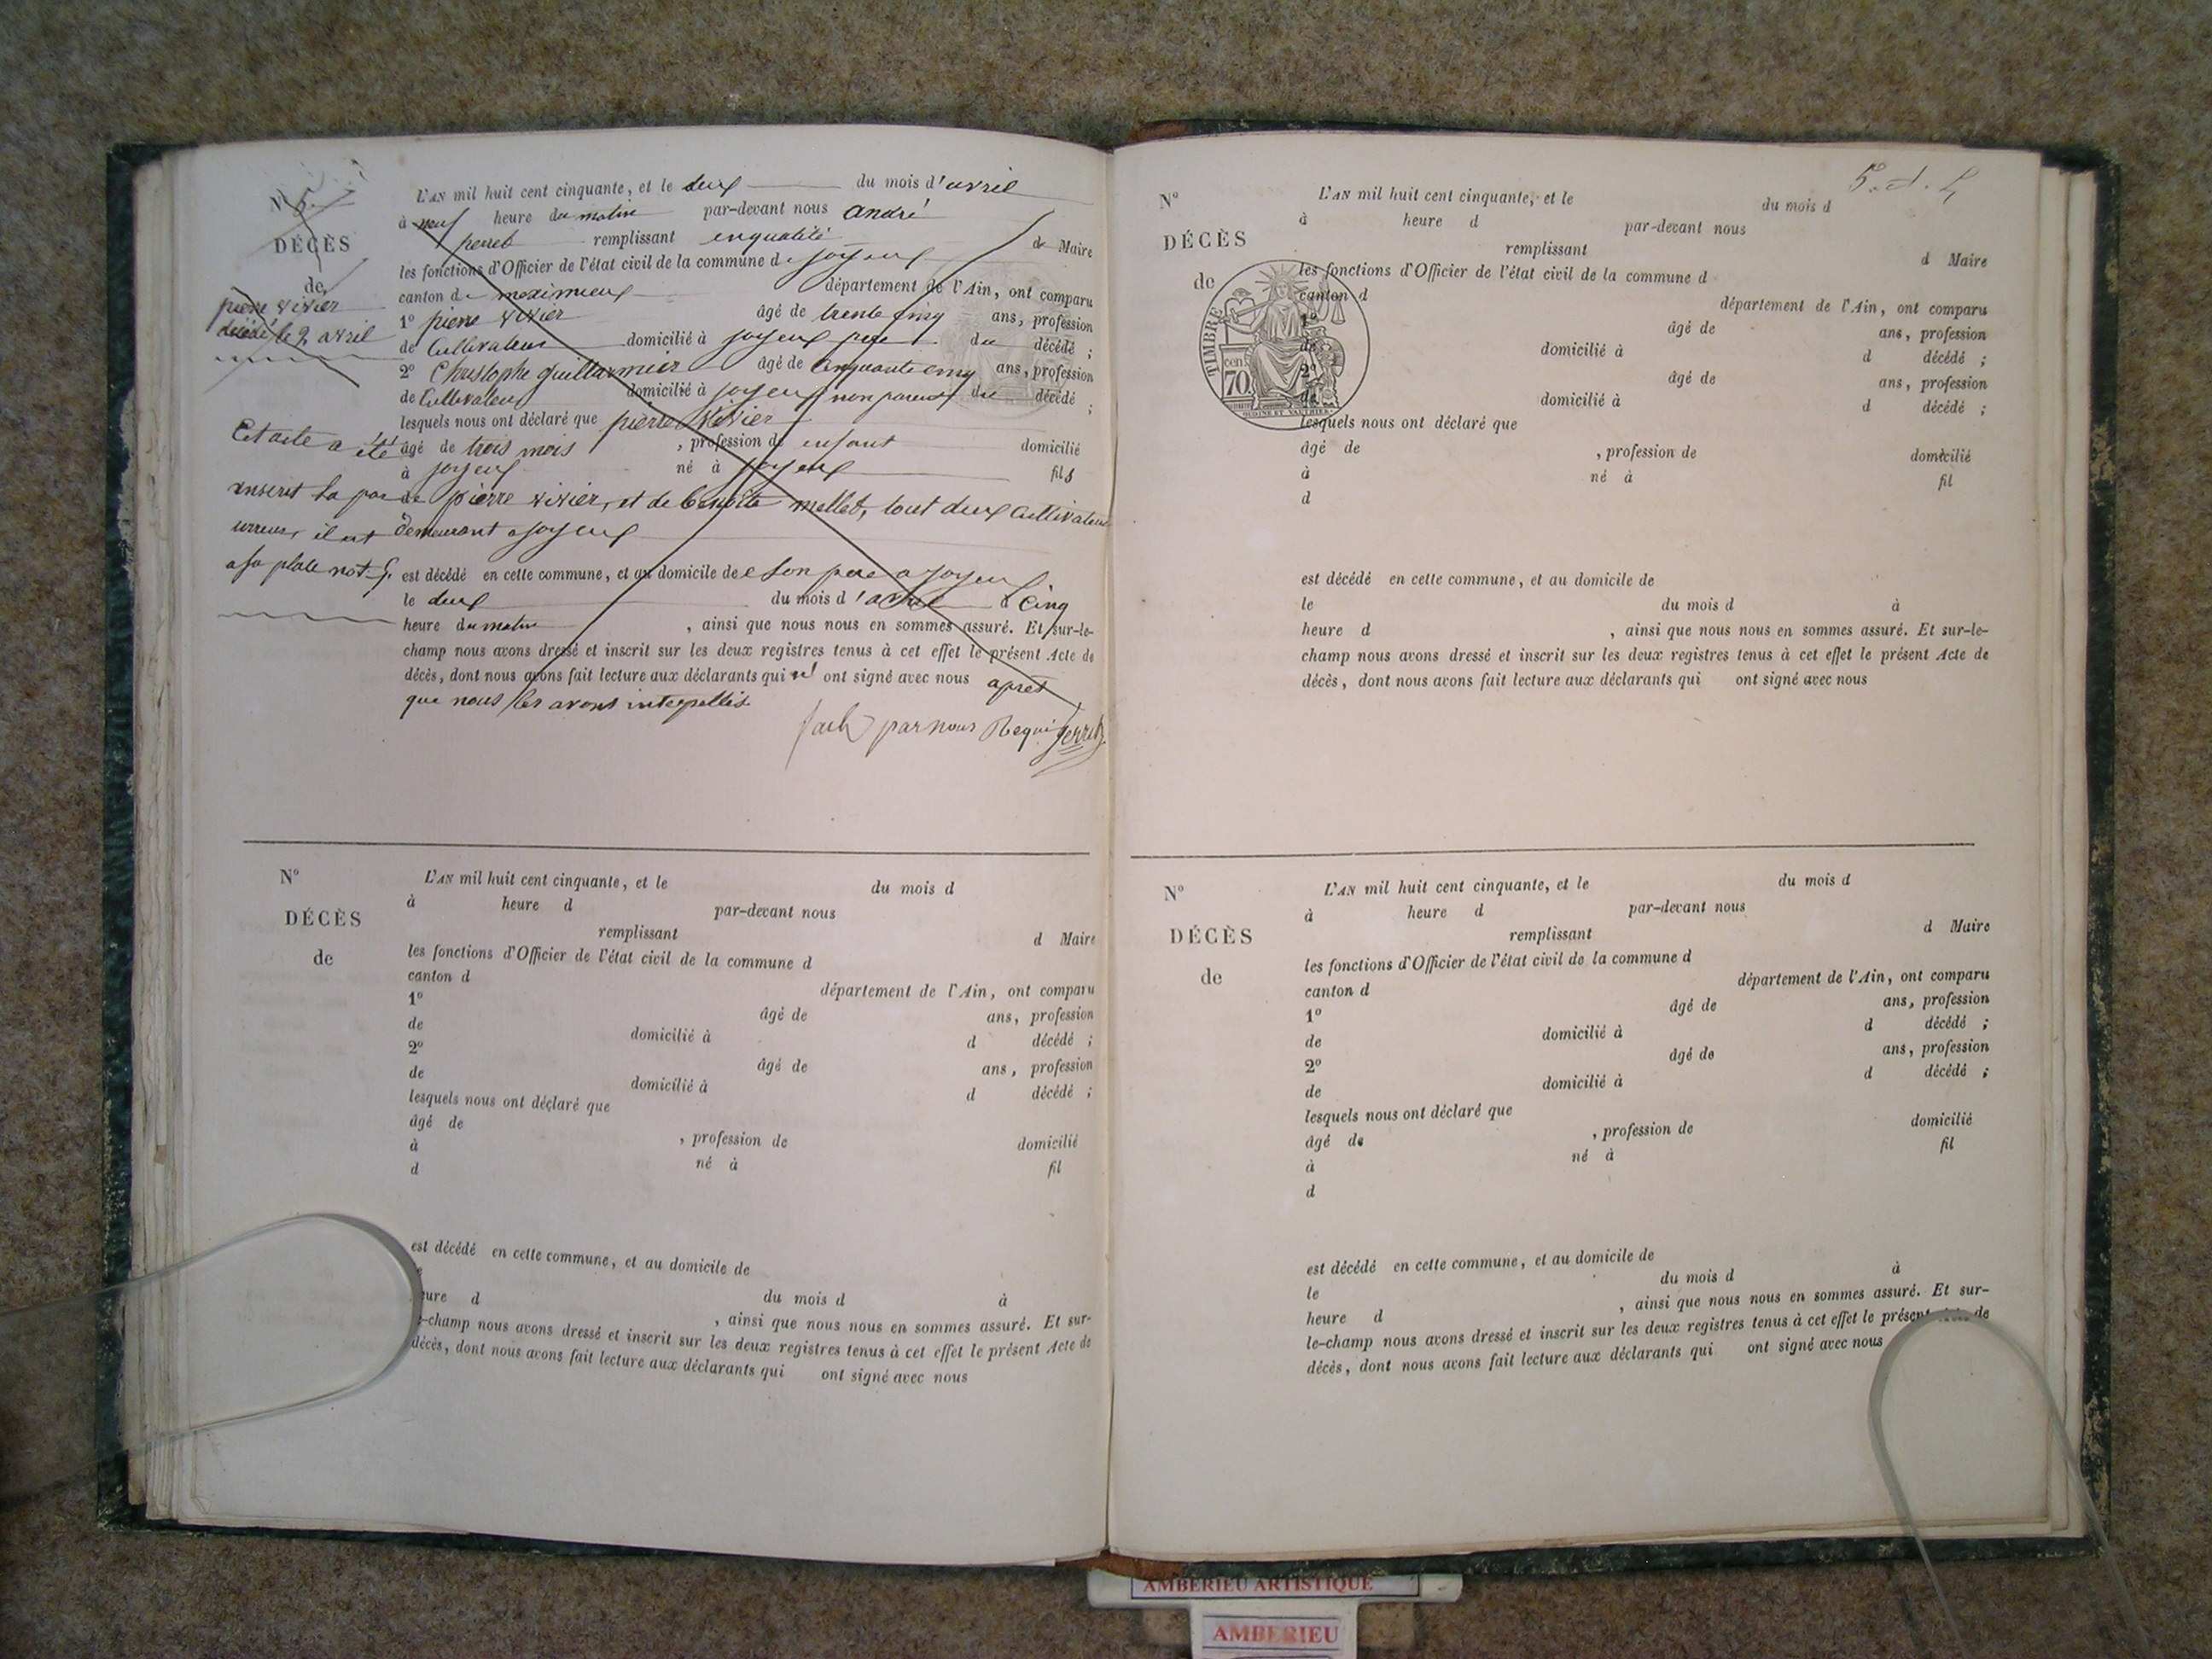 N° 5
DÉCÈS
de
pierre vivier
décédé le 2 avril
L'AN mil huit cent cinquante, et le deux du mois d'avril
à neuf heure du matin par-devant nous andré
perret remplissant en qualité de Maire
les fonctions d'Officier de l'état civil de la commune de joyeux
canton de meximieux département de l'Ain, ont comparu
1° pierre vivier âgé de trente cinq ans, profession
de Cultivateur domicilié à joyeux père du décédé ;
2° Christophe guillarmier âgé de cinquante cinq ans, profession
de Cultivateur domicilié à joyeux non parent du décédé ;
lesquels nous ont déclaré que pierre vivier
âgé de trois mois , profession de enfant domicilié
à joyeux né à joyeux fils
de pierre vivier, et de benoîte mellet, tout deux Cultivateur
demeurant a joyeux
est décédé en cette commune, et au domicile de son pere a joyeux
le deux du mois d'avril à Cinq
heure du matin , ainsi que nous nous en sommes assuré. Et sur-le-
champ nous avons dressé et inscrit sur les deux registres tenus à cet effet le présent Acte de
décès, dont nous avons fait lecture aux déclarants qui n' ont signé avec nous après
que nous les avons interpellés.
par nous Requi Perret
Cet acte a été
inscrit la par
erreur, il est
a sa place not 5.
N°
DÉCÈS
de
L'AN mil huit cent cinquante, et le du mois d
à heure d par-devant nous
remplissant d Maire
les fonctions d'Officier de l'état civil de la commune d
canton d département de l'Ain, ont comparu
1° âgé de ans, profession
de domicilié à d décédé ;
2° âgé de ans, profession
de domicilié à d décédé ;
lesquels nous ont déclaré que
âgé de , profession de domicilié
à né à fil
d
est décédé en cette commune, et au domicile de
du mois d à
eure d , ainsi que nous nous en sommes assuré. Et sur-
-champ nous avons dressé et inscrit sur les deux registres tenus à cet effet le présent Acte de
décès, dont nous avons fait lecture aux déclarants qui ont signé avec nous
5. d. 4
N°
DÉCÈS
de
TIMBRE
70 cen
OUDINÉ ET VAUTHIER
L'AN mil huit cent cinquante, et le du mois d
à heure d par-devant nous
remplissant d Maire
les fonctions d'Officier de l'état civil de la commune d
canton d département de l'Ain, ont comparu
1° âgé de ans, profession
de domicilié à d décédé ;
2° âgé de ans, profession
de domicilié à d décédé ;
lesquels nous ont déclaré que
âgé de , profession de domicilié
à né à fil
d
est décédé en cette commune, et au domicile de
le du mois d à
heure d , ainsi que nous nous en sommes assuré. Et sur-le-
champ nous avons dressé et inscrit sur les deux registres tenus à cet effet le présent Acte de
décès, dont nous avons fait lecture aux déclarants qui ont signé avec nous
N°
DÉCÈS
de
L'AN mil huit cent cinquante, et le du mois d
à heure d par-devant nous
remplissant d Maire
les fonctions d'Officier de l'état civil de la commune d
canton d département de l'Ain, ont comparu
1° âgé de ans, profession
de domicilié à d décédé ;
2° âgé de ans, profession
de domicilié à d décédé ;
lesquels nous ont déclaré que
âgé de , profession de domicilié
à né à fil
d
est décédé en cette commune, et au domicile de
le du mois d à
heure d , ainsi que nous nous en sommes assuré. Et sur-
le-champ nous avons dressé et inscrit sur les deux registres tenus à cet effet le présent de
décès, dont nous avons fait lecture aux déclarants qui ont signé avec nous
AMBERIEU ARTISTIQUE
AMBERIEU